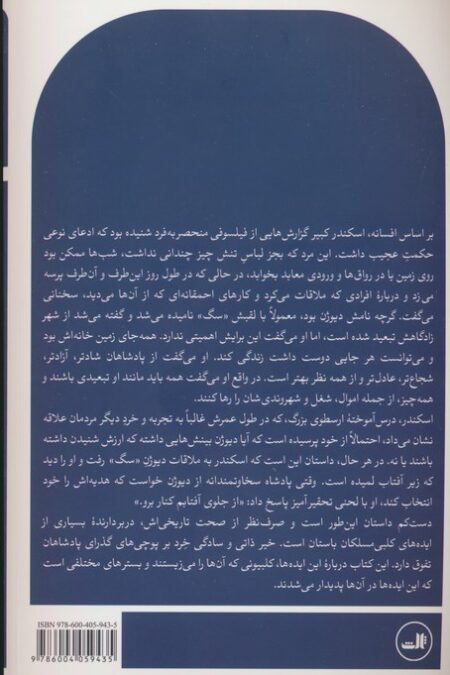 بر اساس افسانه، اسکندر کبیر گزارش‌هایی از فیلسوفی منحصربه‌فرد شنیده بود که ادعای نوعی
حکمتِ عجیب داشت. این مرد که بجز لباس تنش چیز چندانی نداشت، شب‌ها ممکن بود
روی زمین یا در رواق‌ها و ورودی معابد بخوابد، در حالی که در طول روز این‌طرف و آن‌طرف پرسه
می‌زد و دربارهٔ افرادی که ملاقات می‌کرد و کارهای احمقانه‌ای که از آن‌ها می‌دید، سخنانی
می‌گفت. گرچه نامش دیوژن بود، معمولاً با لقبش «سگ» نامیده می‌شد و گفته می‌شد از شهر
زادگاهش تبعید شده است، اما او می‌گفت این برایش اهمیتی ندارد. همه‌جای زمین خانه‌اش بود
و می‌توانست هر جایی دوست داشت زندگی کند. او می‌گفت از پادشاهان شادتر، آزادتر،
شجاع‌تر، عادل‌تر و از همه نظر بهتر است. در واقع او می‌گفت همه باید مانند او تبعیدی باشند و
همه‌چیز، از جمله اموال، شغل و شهروندی‌شان را رها کنند.
اسکندر، درس‌آموختهٔ ارسطوی بزرگ، که در طول عمرش غالباً به تجربه و خردِ دیگر مردمان علاقه
نشان می‌داد، احتمالاً از خود پرسیده است که آیا دیوژن بینش‌هایی داشته که ارزش شنیدن داشته
باشند یا نه. در هر حال، داستان این است که اسکندر به ملاقات دیوژن «سگ» رفت و او را دید
که زیر آفتاب لمیده است. وقتی پادشاه سخاوتمندانه از دیوژن خواست که هدیه‌اش را خود
انتخاب کند، او با لحنی تحقیرآمیز پاسخ داد: «از جلوی آفتابم کنار برو.»
دست‌کم داستان این‌طور است و صرف‌نظر از صحت تاریخی‌اش، دربردارندهٔ بسیاری از
ایده‌های کلبی‌مسلکان باستان است. خیر ذاتی و سادگیِ خرد بر پوچی‌های گذرای پادشاهان
تفوق دارد. این کتاب دربارهٔ این ایده‌ها، کلبیونی که آن‌ها را می‌زیستند و بسترهای مختلفی است
که این ایده‌ها در آن‌ها پدیدار می‌شدند.
ISBN 978-600-405-943-5
9 786004 059435
ثالث